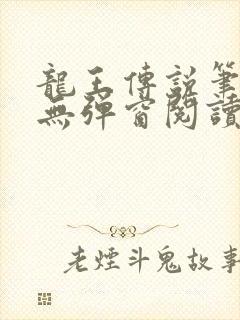 龍王傳說筆
無彈窗閱讀
老煙斗鬼故事